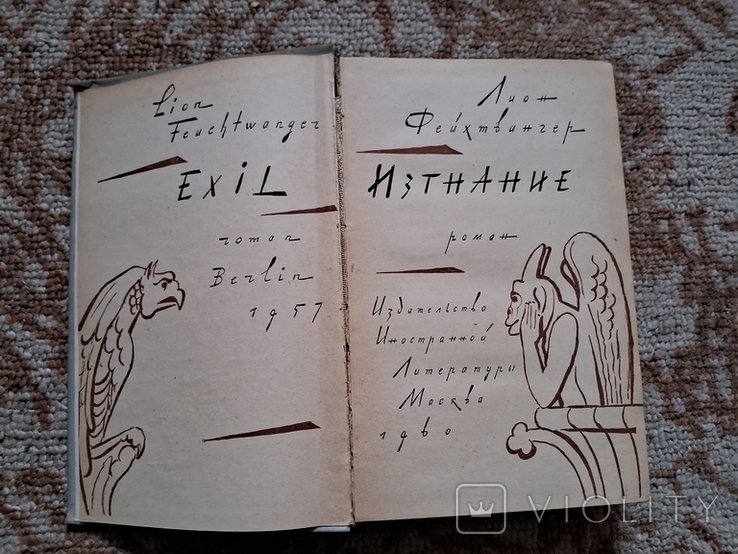 Lion
Feuchtwanger
EXIL
roman
Berlin
1957
Лион
Фейхтвангер
ИЗГНАНИЕ
роман
Издательство
Иностранной
Литературы
Москва
1960
VIOLITY